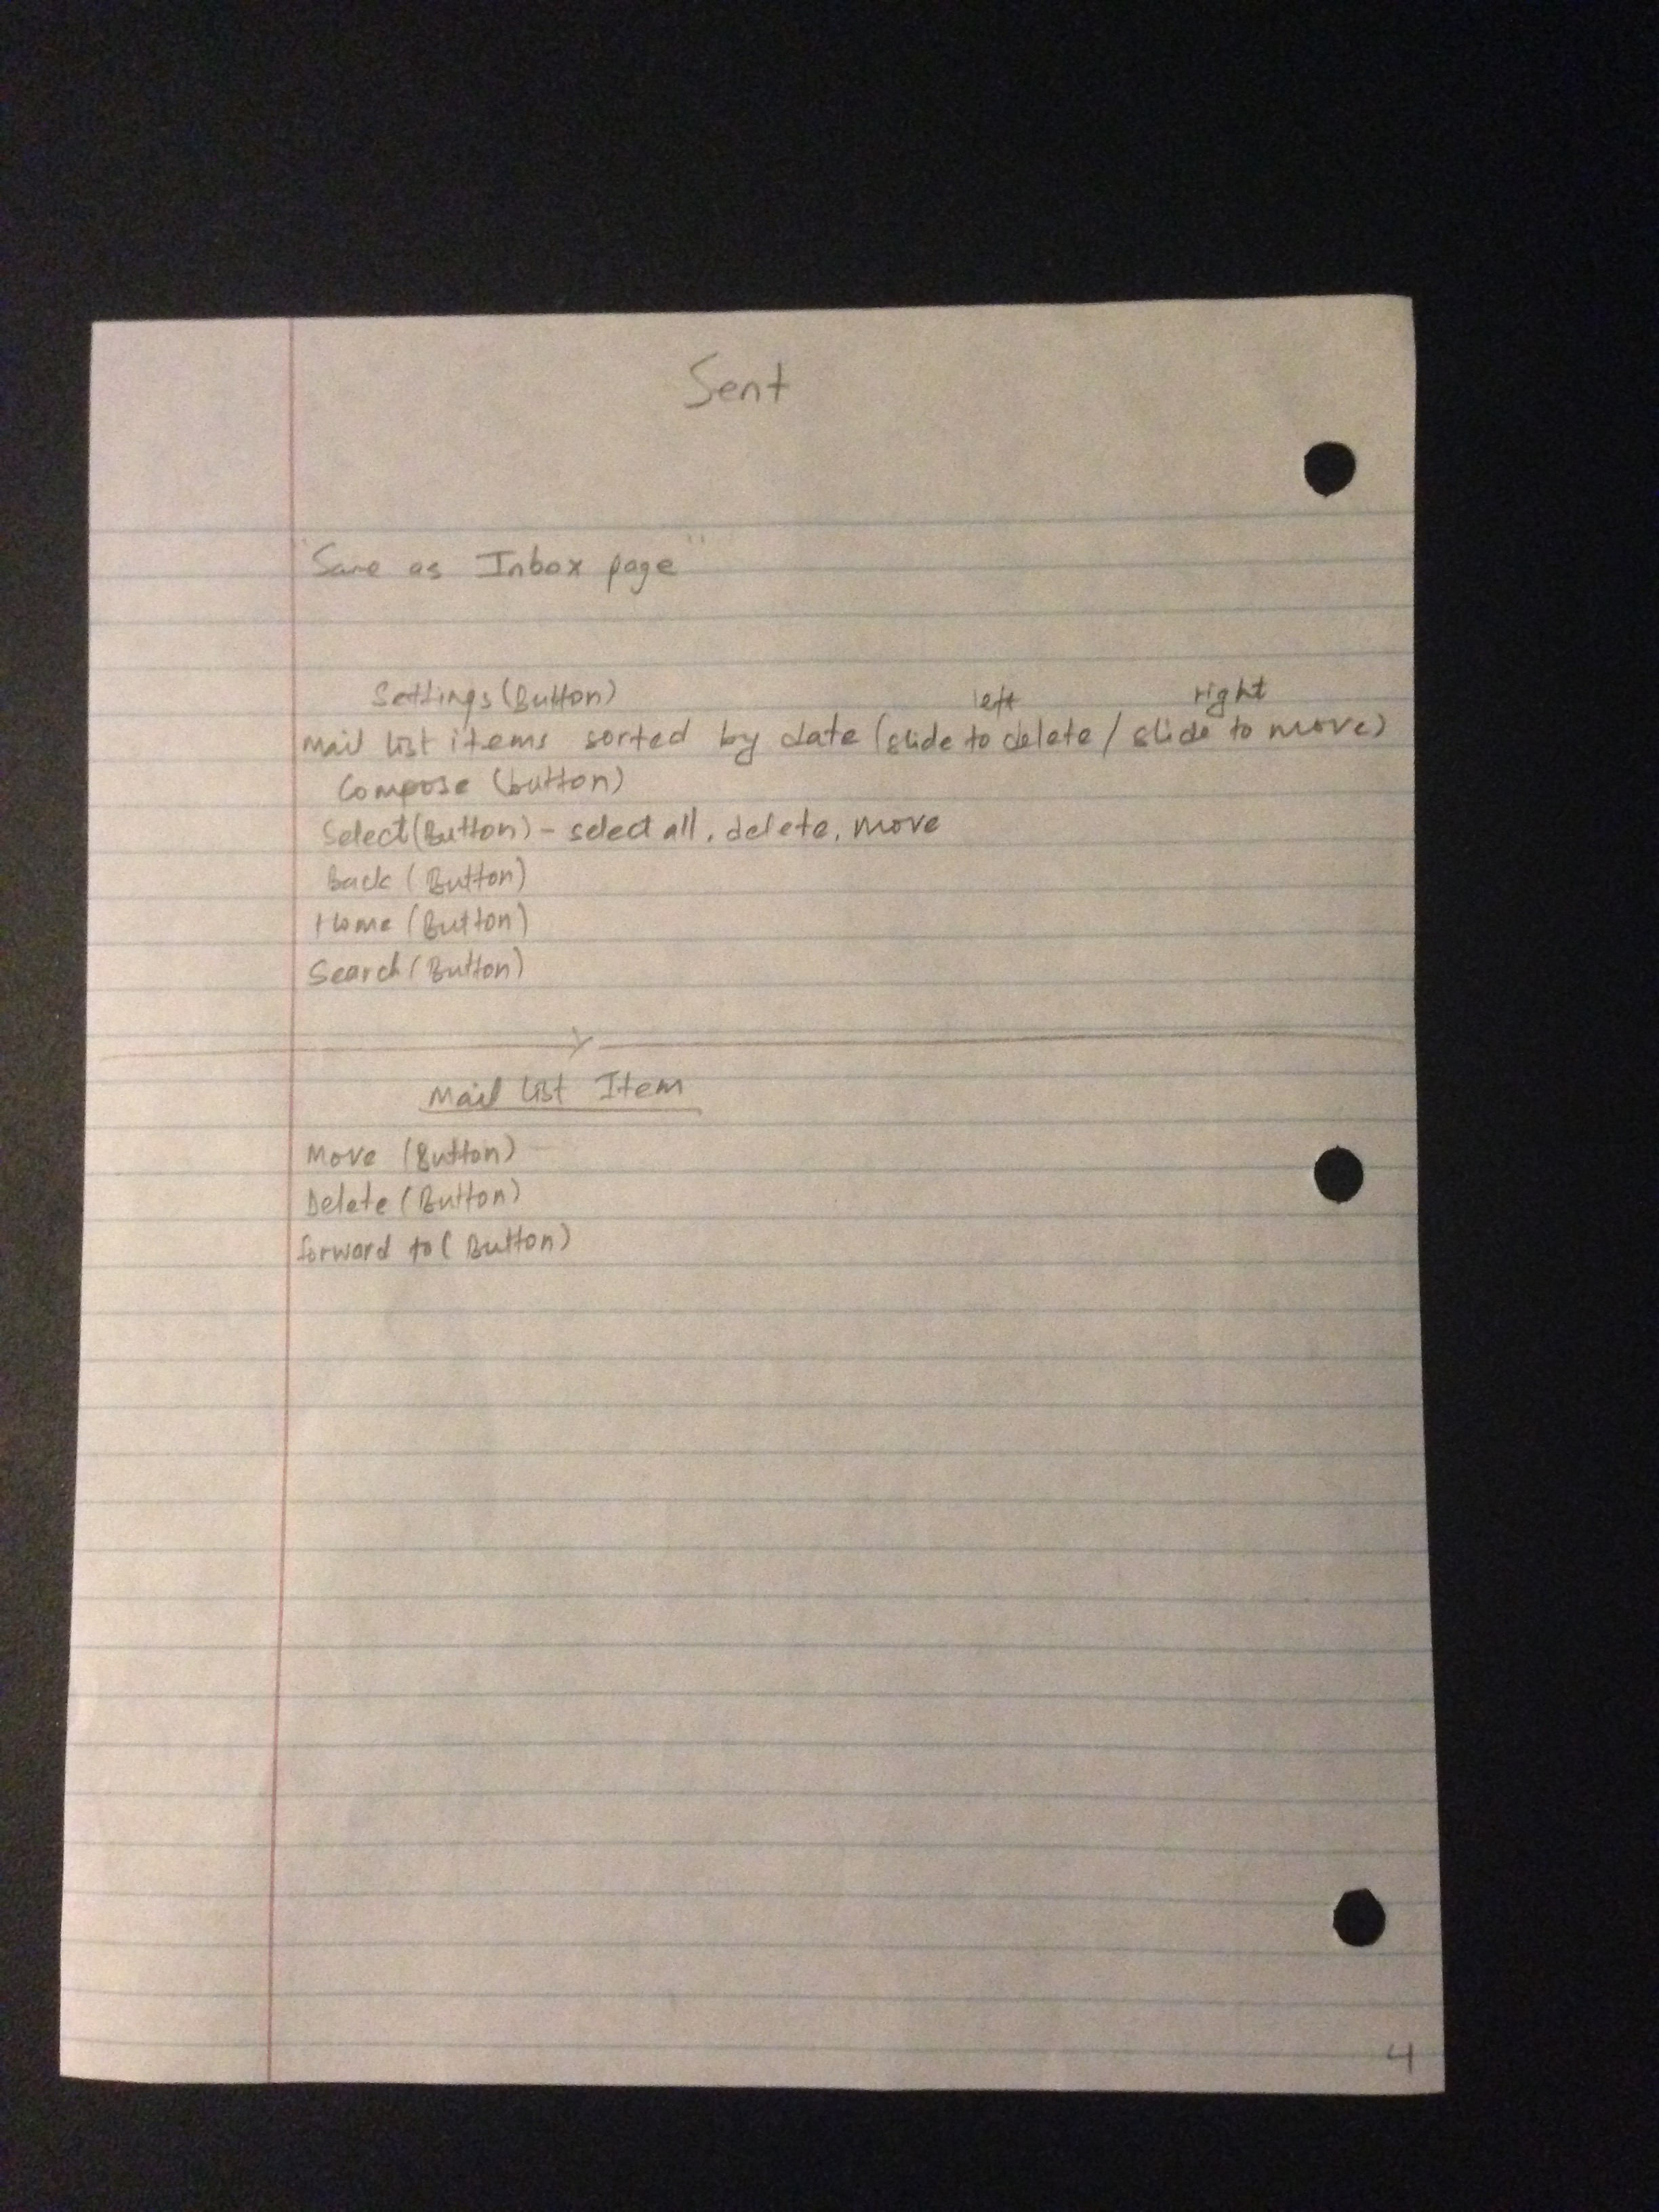 Sent
"Same as Inbox page"
Settings (Button)
left right
Mail list items sorted by date (slide to delete / slide to move)
Compose (button)
Select (Button) - select all, delete, move
Back (Button)
Home (Button)
Search (Button)
Mail list Item
Move (Button)
Delete (Button)
forward to (Button)
4